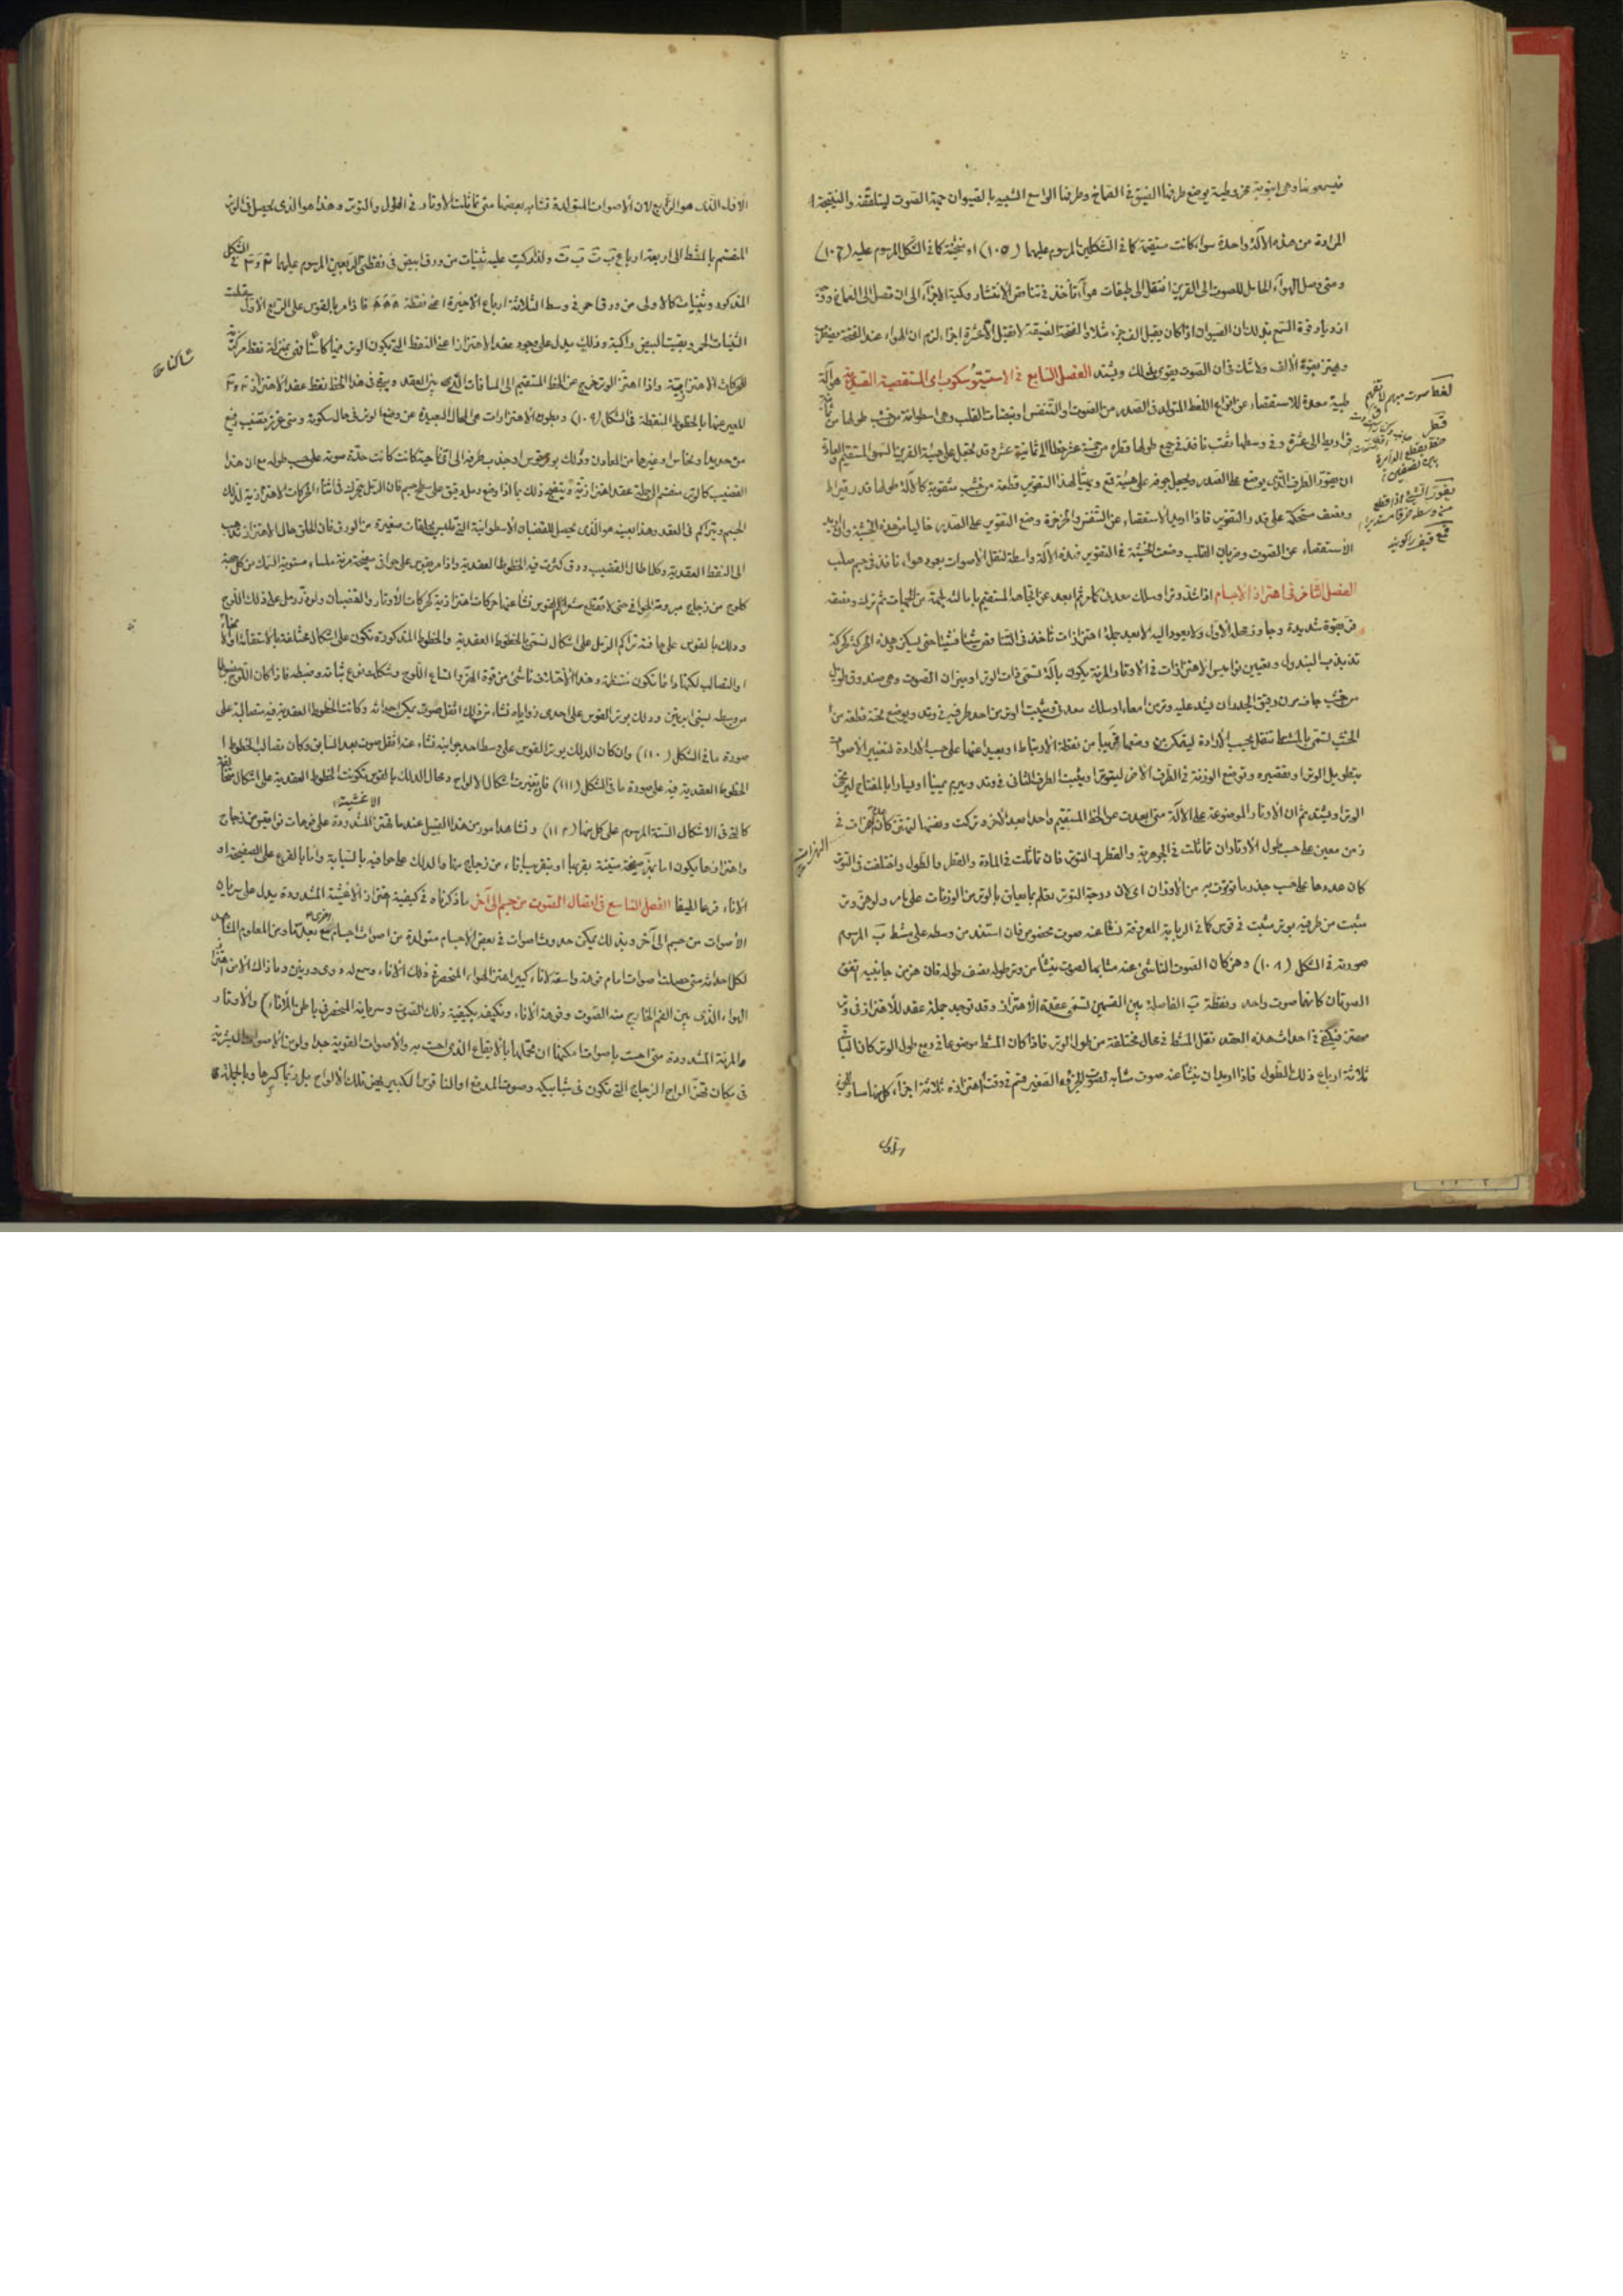 فيسمعونها وهى انبوبة مخروطية يوضع طرفها الضيق فى الصماخ وطرفها الواسع الشبيه بالصيوان جهة الصوت ليتلقفه والنتيجة
المرادة من هذه الآلة واحدة سواء كانت مستقيمة كما فى الشكلين المرسوم عليهما (١٠٥) او منحنية كما فى الشكل المرسوم عليه (١٠٦)
ومتى وصل الهواء الحامل للصوت الى القرين انتقل الى طبقات هواء تأخذ فى تناقص الانتشار وكمية الاجزاء الى ان تصل الى الصماخ
ازدياد قوة السمع بذلك ان الصيوان اذا كان يقبل الف جزء مثلا والفتحة الضيقة لا تقبل الا عشرة اجزاء لزم ان الهواء عند الفتحة
ويهتز بقوة الألف ولا شك فى ان الصوت يقوى بذلك ويشتد الفصل السابع فى الاستيتوسكوب اى المستقصية الصدرية هو آلة
طبية معدة للاستقصاء عن انواع اللغط المتولد فى الصدر من الصوت او التنفس او نبضات القلب وهى اسطوانة من خشب طولها من
قراريط الى عشرة وفى وسطها ثقب نافذ فى جميع طولها وقطره من خمسة عشر خطا الى ثمانية عشر وقد تجعل على هيئة القرين المستقيم والعادة
ان يقور الطرف الذى يوضع على الصدر ويجعل جوفه على هيئة قمع ويهيأ لهذا التقوير قطعة من خشب مثقوبة كالآلة طولها قدر قيراط
ونصف متحركة على قدر التقوير فاذا اريد الاستقصاء عن التنفس والخرخرة وضع التقوير على الصدر خاليا من هذه الخشبة وان اريد
الاستقصاء عن الصوت وضربان القلب وضعت الخشبة فى التقوير فهذه الآلة واسطة لنقل الاصوات بعمود هواء نافذ فى جسم صلب
الفصل الثامن فى اهتزاز الاجسام اذا شد وترا وسلك معدنى كما مر ثم ابعد عن اتجاهه المستقيم بامالته لجهة من الجهات ثم ترك ونفسه
فبقوة شديدة وجاوز محله الاول ولا يعود اليه الا بعد جملة اهتزازات تأخذ فى التناقص شيئا فشيئا حتى يسكن وهذه الحركة كحركة
تذبذب البندول وتعيين نواميس الاهتزازات فى الاوتار المرنة يكون بآلة تسمى ذات الوتر او ميزان الصوت وهى صندوق طويل
من خشب جاف مرن رقيق الجدران يشد عليه وتر من امعاء او سلك معدنى ويثبت الوتر من احد طرفيه فى وتد ويوضع تحته قطعة من
الخشب تسمى بالمشط تنقل بحسب الارادة ليمكن وضعها قريبا من نقطة الارتباط او بعيدا عنها على حسب الارادة لتغيير الاصوات
بتطويل الوتر او تقصيره وتوضع الوزنة فى الطرف الآخر ليتوتر او يثبت الطرف الثانى فى وتد ويبرم يمينا او يسارا بالمفتاح ليرتخى
الوتر او يشتد ثم ان الاوتار الموضوعة على الآلة متى ابعدت عن الخط المستقيم واحدا بعد الآخر وتركت ونفسها لتهتز كان عدد الهزات فى
زمن معين على حسب طول الاوتار ان تماثلت فى الجوهرية والقطر والتوتر فان تماثلت فى المادة والقطر والطول واختلفت فى التوتر
كان عددها على حسب جذر ما توترت به من الاوزان اى لان درجة التوتر تعلم بما يعلق بالوتر من الوزنات على ما مر ولو هز وتر
مثبت من طرفيه بوتر مثبت فى قوس كما فى الربابة المعروفة نشأ عنه صوت مخصوص فان استند من وسطه على مشط ب المرسوم
صورته فى الشكل (١٠٨) وهز كان الصوت الناشئ عنه مشابها لصوت ينشأ من وتر طوله نصف طوله فان هز من جانبيه اتفق
الصوتان كانهما صوت واحد ونقطة ب الفاصلة بين القسمين تسمى عقدة الاهتزاز وقد توجد جملة عقد للاهتزاز فى وتر
مهتز فيكفى فى احداث هذه العقد نقل المشط فى محال مختلفة من طول الوتر فاذا كان المشط موضوعا فى ربع طول الوتر كان الباقى
ثلاثة ارباع ذلك الطول فاذا اريد ان ينشأ عنه صوت مشابه لصوت الجزء الصغير قسم فى وقت اهتزازه ثلاثة اجزاء كل منها مساو للجزء
الاول
لغط صوت مبهم لا يفهم
قطر
خط يقطع الدائرة
بين نصفين
يقور الشئ اذا قطع
من وسطه خرقا مستديرا
الهزات
الاول الذى هو الربع لان الاصوات المتولدة تشابه بعضها متى تماثلت الاوتار فى الطول والتوتر وهذا هو الذى يحصل فى الوتر
المنقسم بالمشط الى اربعة ارباع ب ت ب ت ولذا ركبت عليه ثنيات من ورق ابيض فى نقطتى الربعين المرسوم عليهما ٣ و ٣ فى الشكل
المذكور وثنيات كالاولى من ورق احمر فى وسط الثلاثة ارباع الاخيرة اى نقطة ٨٨٨ فاذا مر بالقوس على الربع الاول سقطت
الثنيات الحمر وبقيت البيض راكبة وذلك يدل على وجود عقد الاهتزاز اعنى النقط التى يكون الوتر فيها كائنا فى بمنزلة نقط مركزية
للحركات الاهتزازية واذا اهتز الوتر خرج عن الخط المستقيم الى المسافات التى بين العقد ويبقى فى هذا الخط نقط عقد الاهتزاز
المعبر عنها بالخطوط المنقطة فى الشكل (١٠٩) وبطون الاهتزازات هى المحال البعيدة عن وضع الوتر فى حال سكونه ومتى غرز قضيب رفيع
من حديد او نحاس او غيرها من المعادن ودلك بوتر قوس او جذب طرفه الى اى ناحية كانت كانت حدة صوته على حسب طوله مع ان هذا
القضيب كالوتر منقسم الى جملة عقد اهتزازية ويتضح ذلك بما اذا وضع رمل دقيق على سطح جسم فان الرمل يتحرك فى اثناء الحركات الاهتزازية لذلك
الجسم ويتراكم فى العقد وهذا بعينه هو الذى يحصل للقضبان الاسطوانية التى تلبس بحلقات صغيرة من الورق فان الحلق حال الاهتزاز تذهب
الى النقط العقدية وكلما طال القضيب ودق كثرت فيه الخطوط العقدية واذا مر بقوس على حوافى صفيحة مرنة ملساء مستوية السمك من كل جهة
كلوح من زجاج مبرودة الحوافى حتى لا تقطع شعر القوس نشأ عنها حركات اهتزازية كحركات الاوتار والقضبان ولو ذر رمل على ذلك اللوح
ودلك بالقوس على حافته تراكم الرمل على اشكال تسمى بالخطوط العقدية والخطوط المذكورة تكون على اشكال مختلفة بالاستقامة والانحناء
او التصالب لكنها دائما تكون منتظمة وهذا الاختلاف ناشئ من قوة الهز واتساع اللوح وشكله ونوع ثباته وضبطه فاذا كان اللوح مضبوطا
من وسطه بين ابريتين ودلك بوتر القوس على احدى زواياه نشأ من ذلك اثقل صوت يمكن احداثه وكانت الخطوط العقدية فيه متصالبة على
صورة ما فى الشكل (١١٠) وان كان الدلك بوتر القوس على وسط احد جوانبه نشأ عنه اثقل صوت بعد السابق وكان تصالب الخطوط
العقدية فيه على صورة ما فى الشكل (١١١) فان تغيرت اشكال الالواح ومحال الدلك بالقوس تكونت الخطوط العقدية على اشكال مختلفة
كالتى فى الاشكال الستة المرسوم على كل منها (١١٢) ونشاهد امور من هذا القبيل عندما تهتز الاغشية المشدودة على فوهات نواقيس من زجاج
واهتزازها يكون اما بهز صفيحة متينة بقربها او بتقريب اناء من زجاج منها والدلك على حوافيه بالسبابة واما بالقرع على الصفيحة او
الاناء قرعا لطيفا الفصل التاسع فى انتقال الصوت من جسم الى آخر ما ذكرناه فى كيفية اهتزاز الاغشية المشدودة يدل على سريان
الاصوات من جسم الى آخر وبذلك يمكن حدوث اصوات فى بعض الاجسام متولدة من اصوات اجسام اخرى مع بعد ما ومن المعلوم المشاهد
لكل احد انه متى حصلت اصوات امام فوهة واسعة لاناء كبير اهتز الهواء المنحصر فى ذلك الاناء وسمع له دوى ورنين وما ذاك الا من اهتزاز
الهواء الذى بين الفم الخارج منه الصوت وفوهة الاناء وتكيفه بكيفية ذلك الصوت وسريانه الى المنحصر فى باطن الاناء والاوتار
المرنة المشدودة متى اجيبت باصوات امكنها ان تحاكيها بالايقاع الذى اجيبت به والاصوات القوية جدا ولو من الاصوات البشرية
فى مكان تهز الواح الزجاج التى تكون فى شبابيكه وصوت المدفع او الناقوس الكبير يهز تلك الالواح بل ربما كسرها وبالجملة